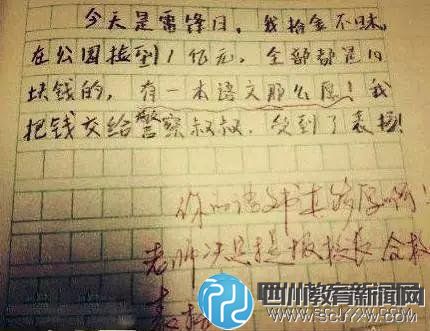 今天是雷锋日，我拾金不昧，
在公园捡到1亿元，全部都是10
块钱的，有一本语文那么厚！我
把钱交给警察叔叔，受到了表扬！
你的语文书真够厚啊！
老师决定提报校长 全校
表扬
四川教育新闻网
WWW.SCJYXW.COM